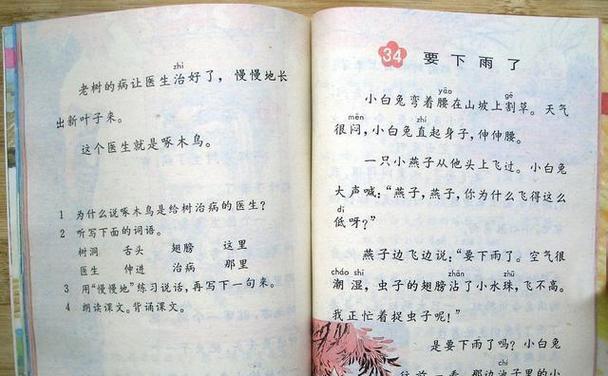 zhì
老树的病让医生治好了，慢慢地长
出新叶子来。
这个医生就是啄木鸟。
1 为什么说啄木鸟是给树治病的医生？
2 听写下面的词语。
树洞 舌头 翅膀 这里
医生 伸进 治病 那里
3 用“慢慢地”练习说话，再写下一句来。
4 朗读课文。背诵课文。
34 要下雨了
yāo gē
小白兔弯着腰在山坡上割草。天气
mēn
很闷，小白兔直起身子，伸伸腰。
一只小燕子从他头上飞过。小白兔
大声喊：“燕子，燕子，你为什么飞得这么
dī
低呀？”
燕子边飞边说：“要下雨了。空气很
cháo shī zhān zhū
潮湿，虫子的翅膀沾了小水珠，飞不高。
我正忙着捉虫子呢！”
是要下雨了吗？小白兔
chí
往前一看，那边池子里的小